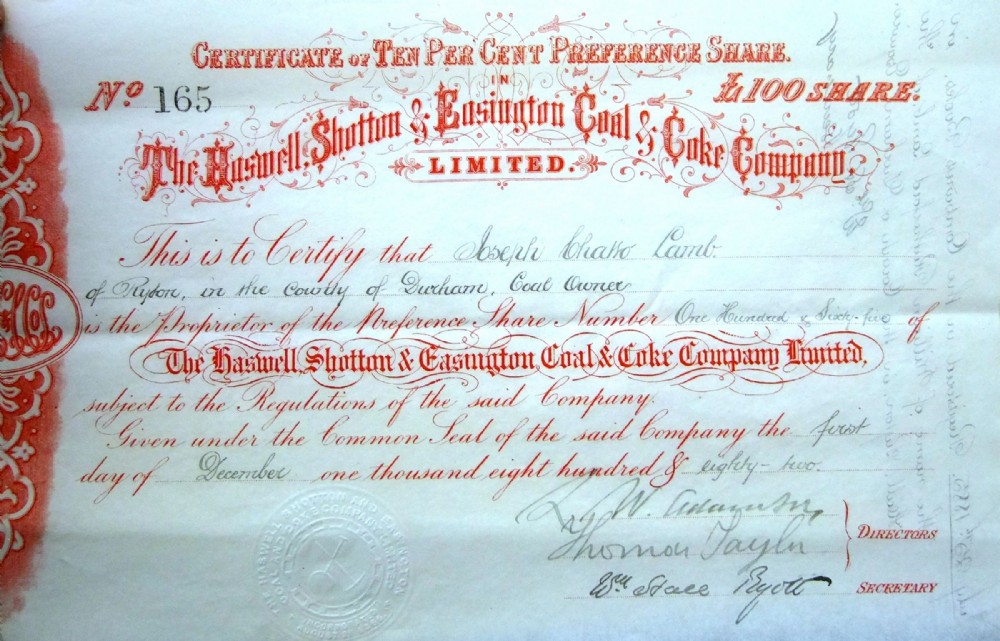 CERTIFICATE OF TEN PER CENT PREFERENCE SHARE.
IN
No 165
£100 SHARE.
The Haswell, Shotton & Easington Coal & Coke Company,
LIMITED.
This is to Certify that Joseph Chatto Lamb.
of Ryton, in the County of Durham, Coal Owner
is the Proprietor of the Preference Share Number One Hundred & Sixty-five of
The Haswell, Shotton & Easington Coal & Coke Company Limited,
subject to the Regulations of the said Company.
Given under the Common Seal of the said Company the first
day of December one thousand eight hundred & eighty-two.
W. Adamson
Thomas Taylor
DIRECTORS
Wm Stace Ryott
SECRETARY